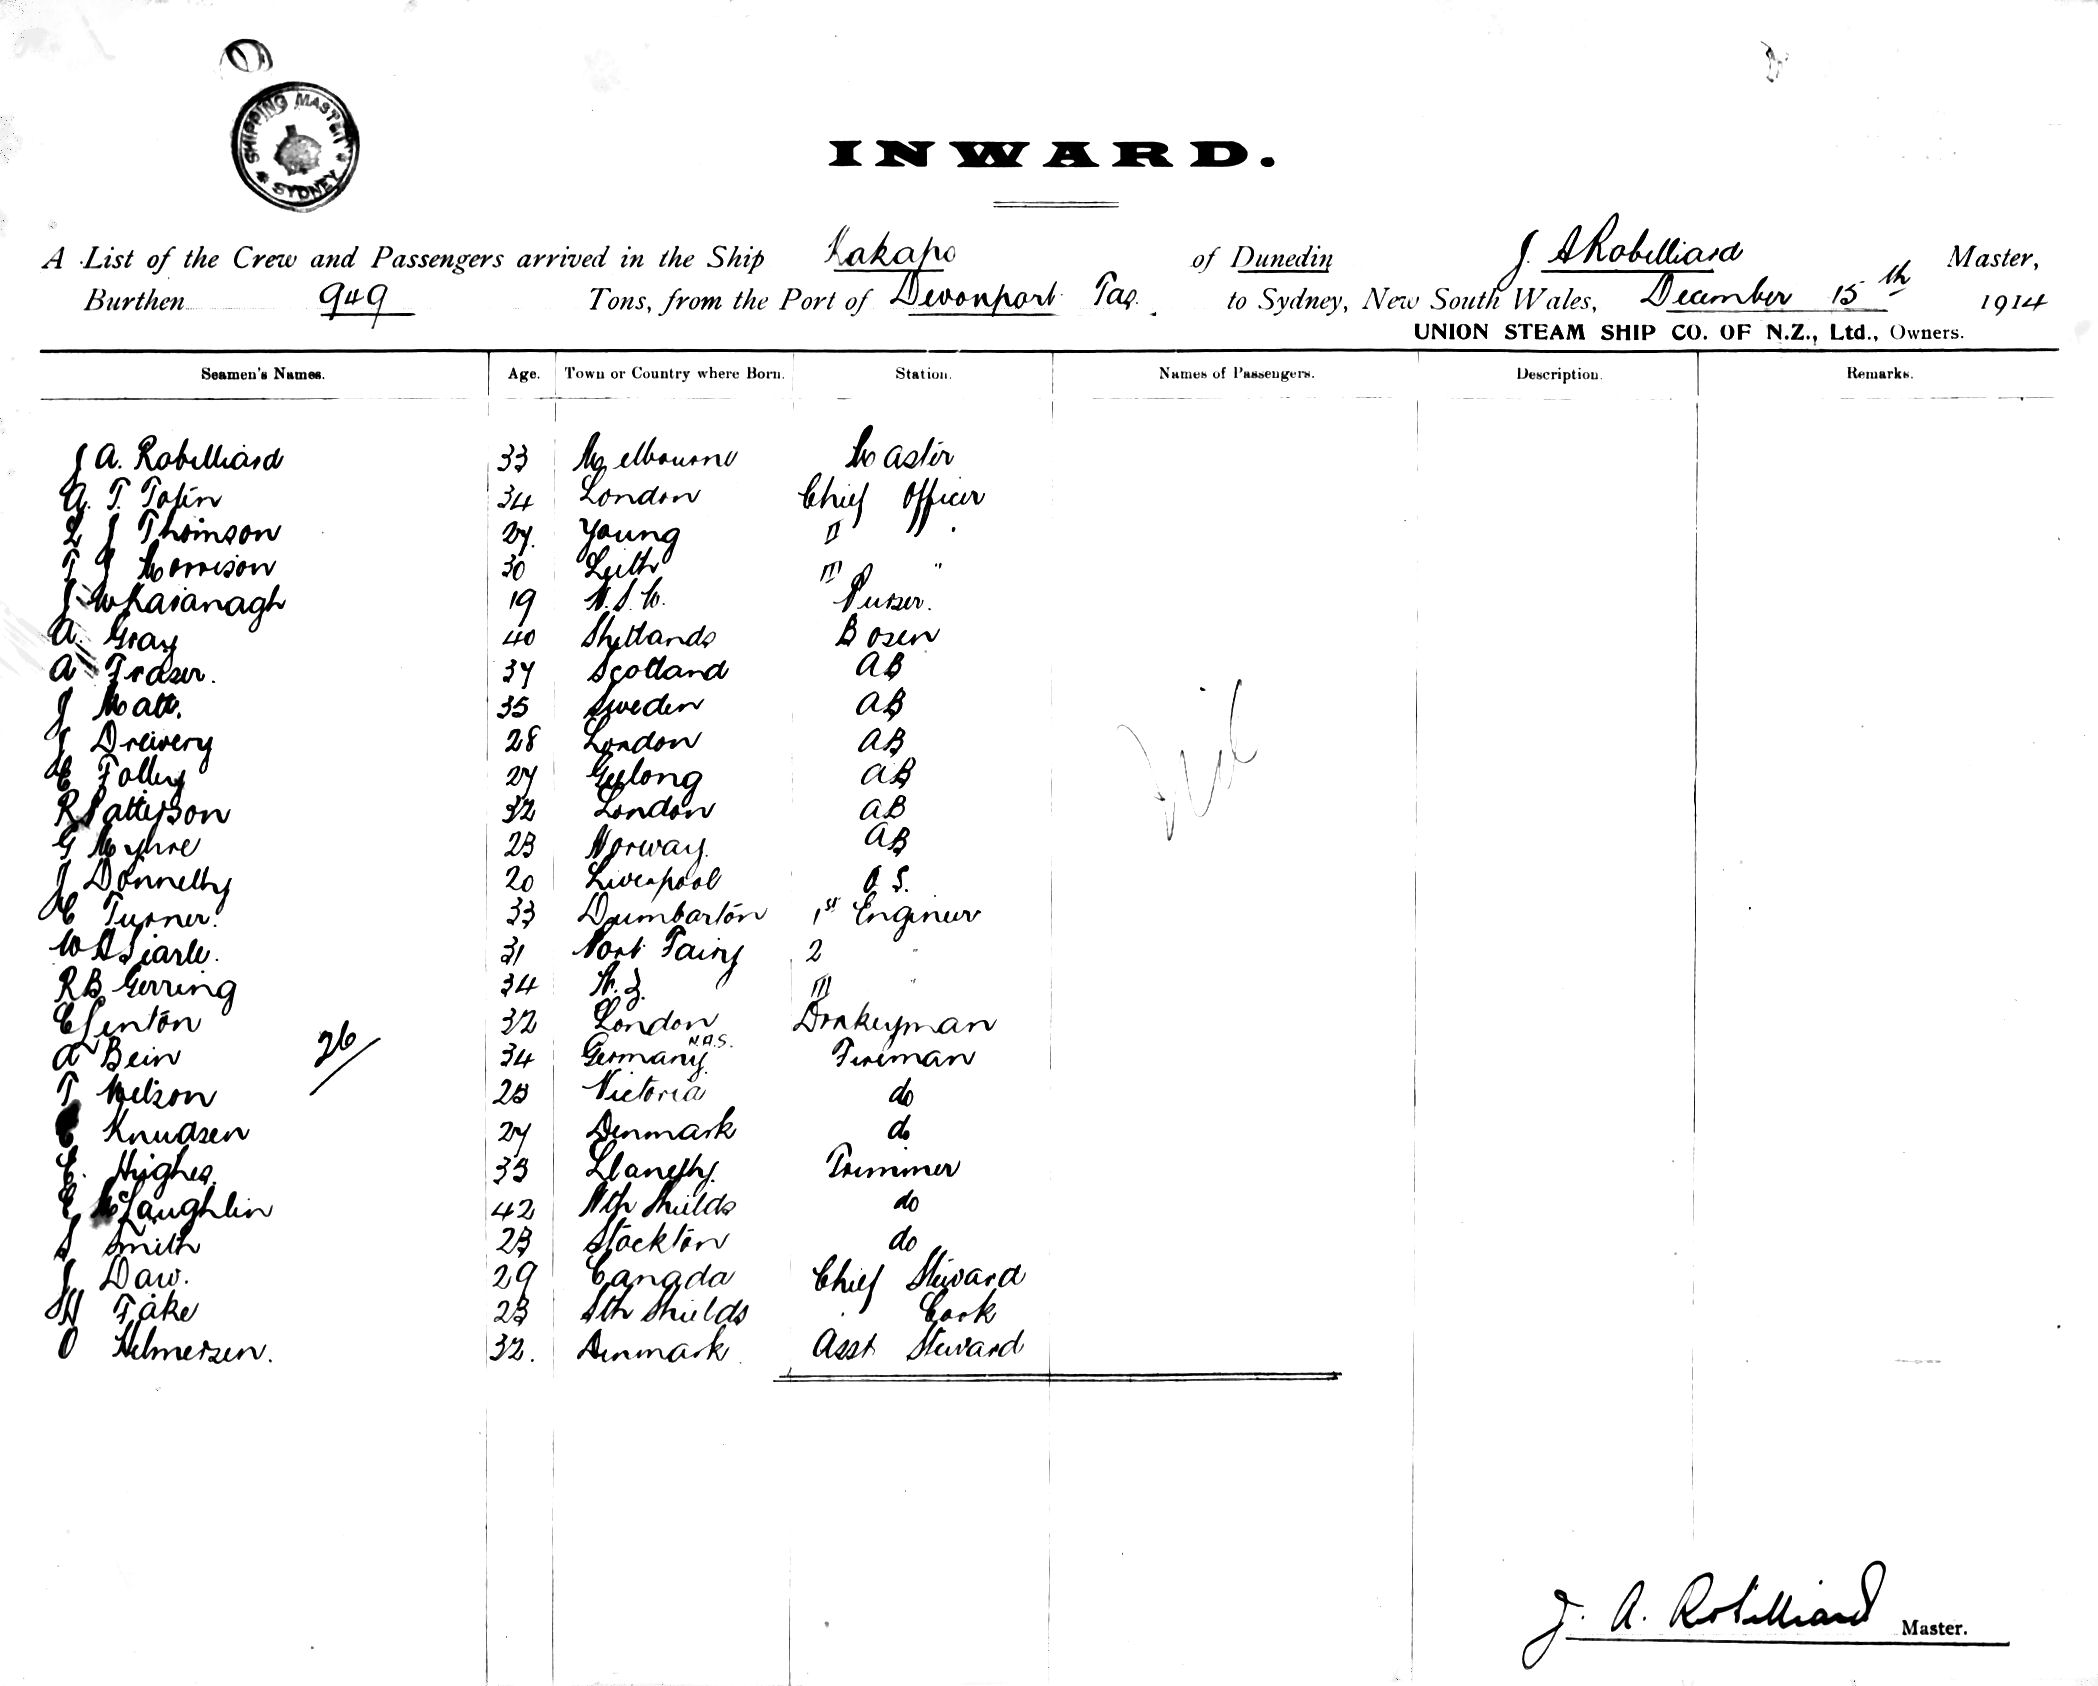 SHIPPING MASTER
SYDNEY
INWARD.
A List of the Crew and Passengers arrived in the Ship Kakapo of Dunedin J. A Robilliard Master,
Burthen 949 Tons, from the Port of Devonport Tas. to Sydney, New South Wales, December 15th 1914
UNION STEAM SHIP CO. OF N.Z., Ltd., Owners.
Seamen's Names. Age. Town or Country where Born. Station. Names of Passengers. Description. Remarks.
J A. Robilliard 33 Melbourne Master
A. T. 34 London Chief Officer
L J Thomson 27. Young II "
T J Morrison 30 Leith III "
J W Kavanagh 19 N.S.W. Purser.
A. Gray 40 Shetlands Bosen
A Fraser. 37 Scotland AB
J Matt. 35 Sweden AB
J Dreivery 28 London AB
C Folley 27 Geelong AB
R Patterson 32 London AB
G Myhre 23 Norway. AB
J Donnelly 20 Liverpool O S.
C Turner. 33 Dumbarton 1st Engineer
W A Searle. 31 Port Fairy 2 "
R B Gerring 34 N.Z. III "
C Lenton 32 London Donkeyman
A Bein 34 Germany. N.A.S. Fireman
26/
T Nelson 23 Victoria do
C Knudsen 27 Denmark do
E. Hughes. 33 Llanelly. Trimmer
E McLaughlin 42 Nth Shields do
S Smith 23 Stockton do
J Daw. 29 Canada Chief Steward
H Fake 23 Sth Shields " Cook
O Helmersen. 32. Denmark. Asst Steward
Nil
J. A. Robilliard Master.